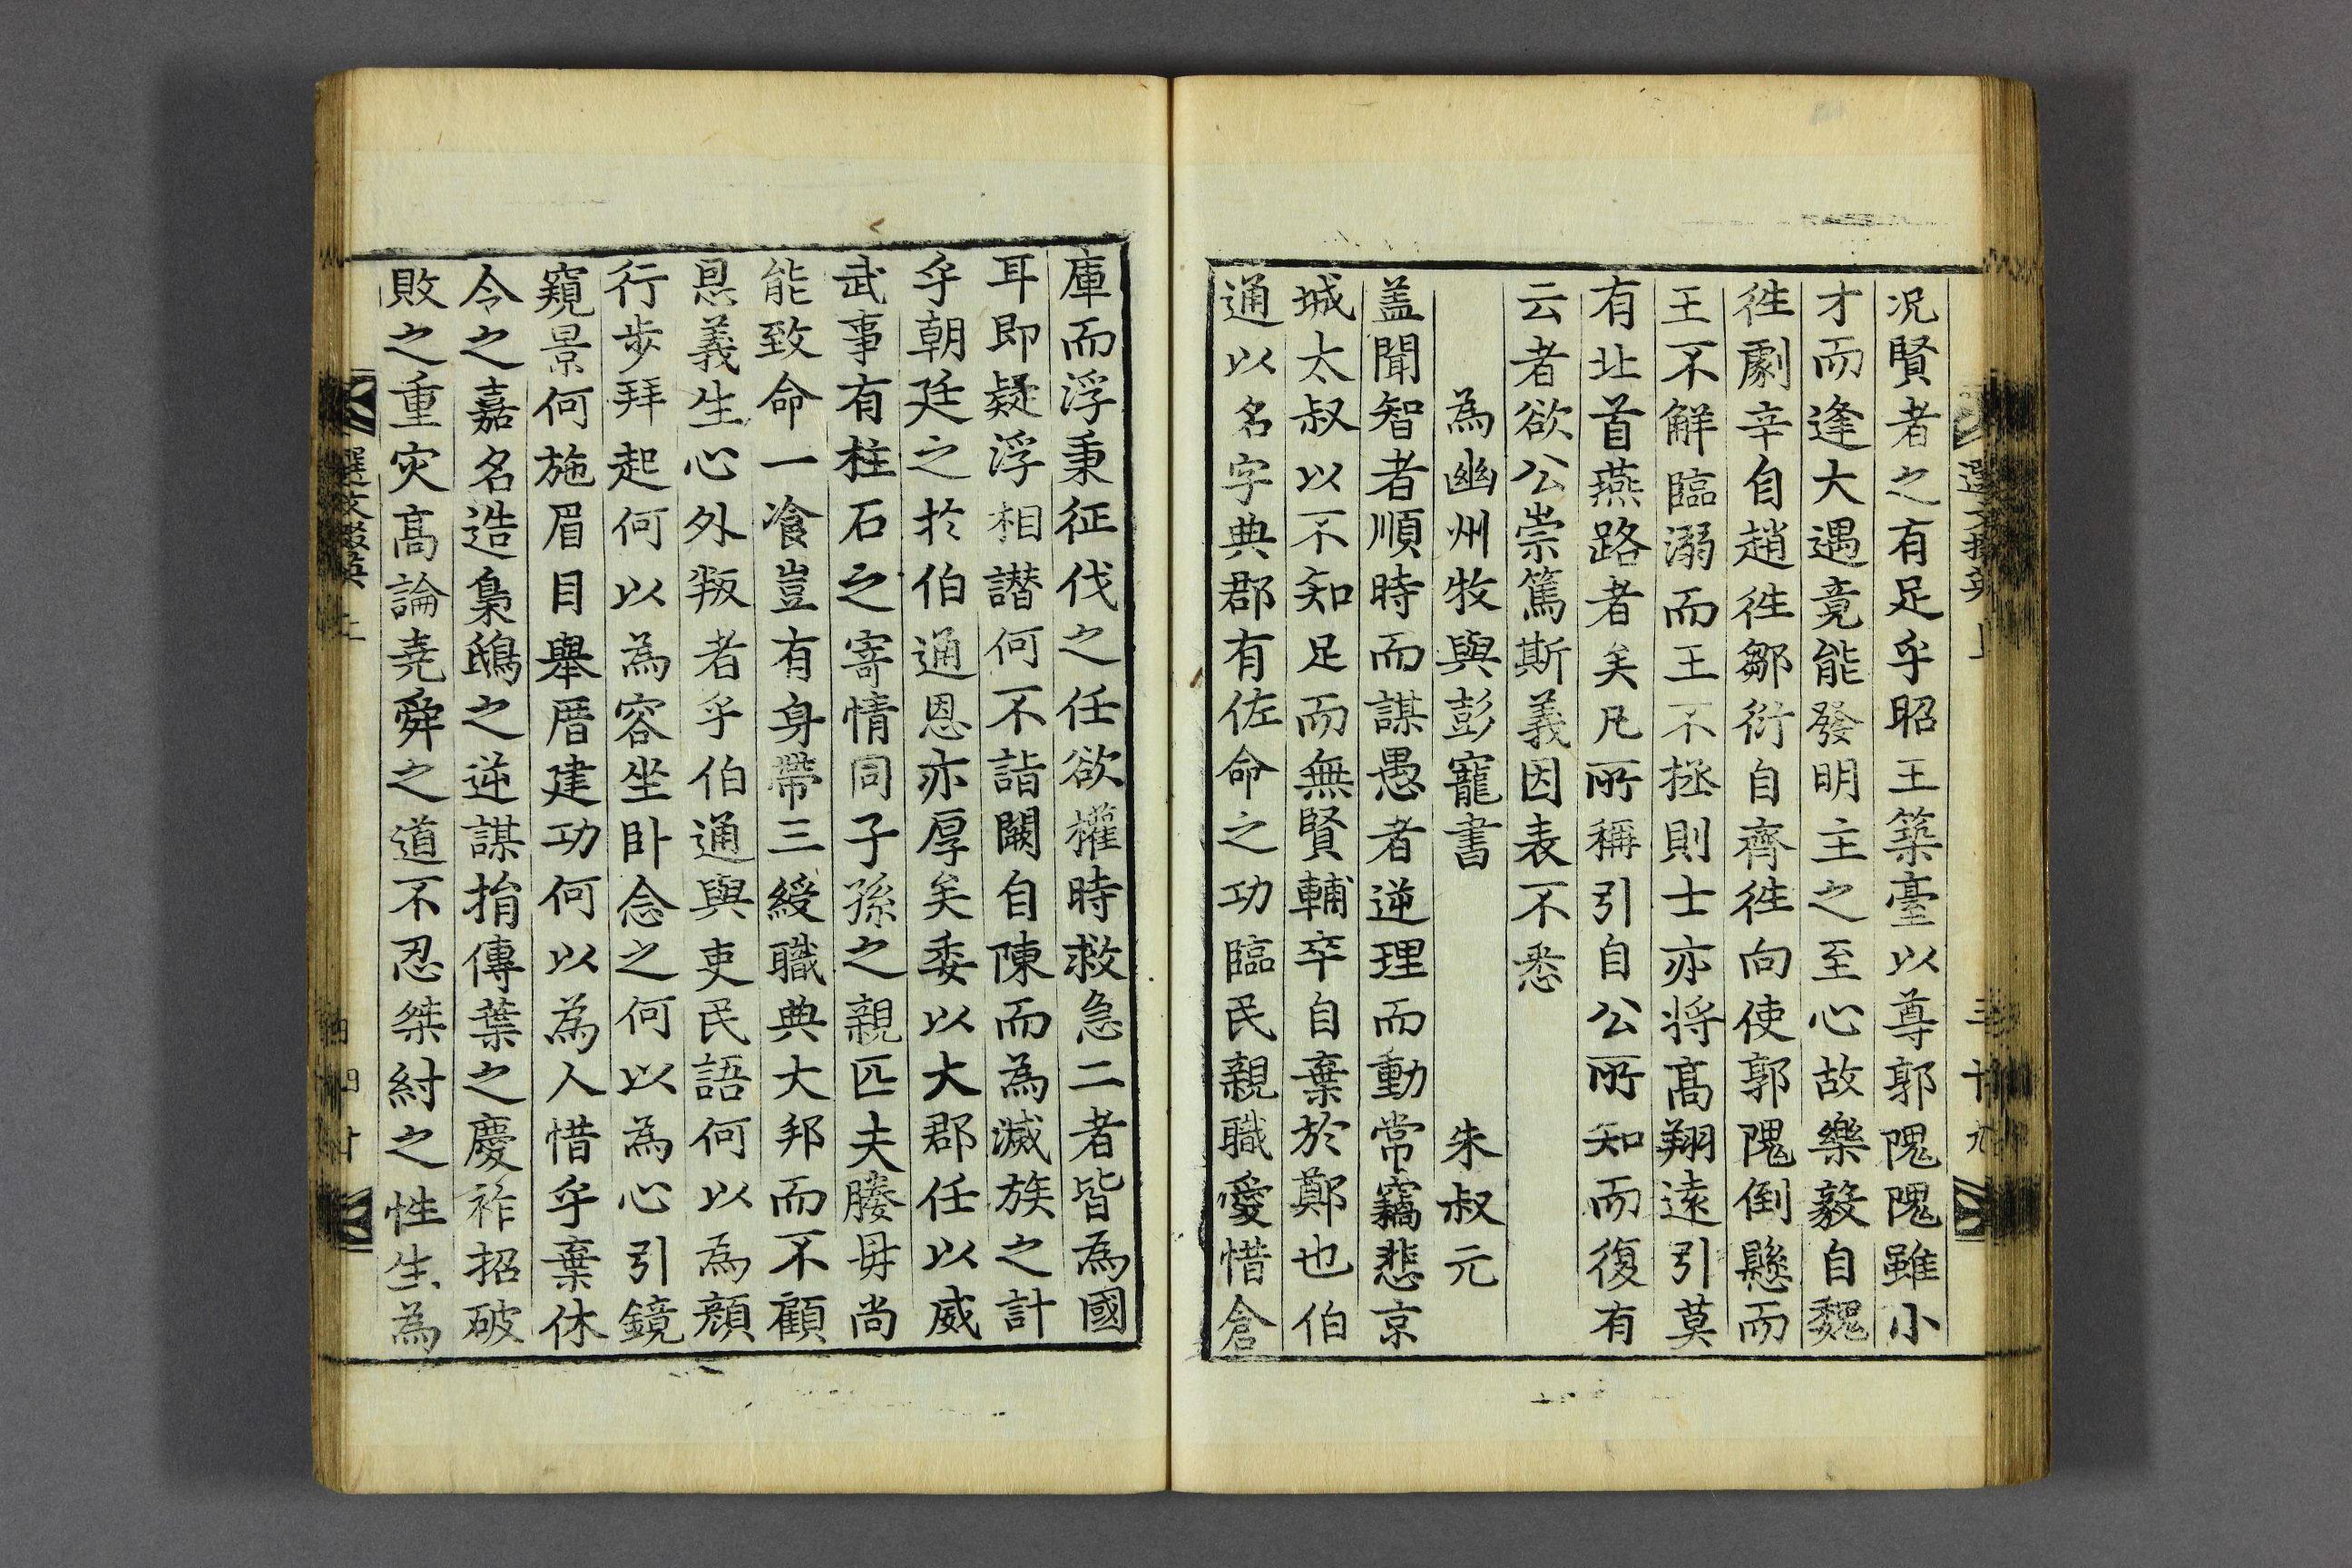 况賢者之有足乎昭王築臺以尊郭隗隗雖小
才而逢大遇竟能發明主之至心故樂毅自魏
徃劇辛自趙徃鄒衍自齊徃向使郭隗倒懸而
王不觧臨溺而王不拯則士亦将髙翔遠引莫
有北首燕路者矣凡所稱引自公所知而復有
云者欲公崇篤斯義因表不悉
為幽州牧與彭寵書 朱叔元
盖聞智者順時而謀愚者逆理而動常竊悲京
城太叔以不知足而無賢輔卒自棄於鄭也伯
通以名字典郡有佐命之功臨民親職愛惜倉
庫而浮秉征伐之任欲權時救急二者皆為國
耳即疑浮相譖何不詣闕自陳而為滅族之計
乎朝廷之於伯通恩亦厚矣委以大郡任以威
武事有柱石之寄情同子孫之親匹夫媵毋尚
能致命一飡豈有身帶三綬職典大邦而不顧
恩義生心外叛者乎伯通與吏民語何以為顔
行步拜起何以為容坐卧念之何以為心引鏡
窺景何施眉目舉厝建功何以為人惜乎棄休
令之嘉名造梟鴟之逆謀捐傳葉之慶祚招破
敗之重灾髙論堯舜之道不忍桀紂之性生為
選文掇英 上